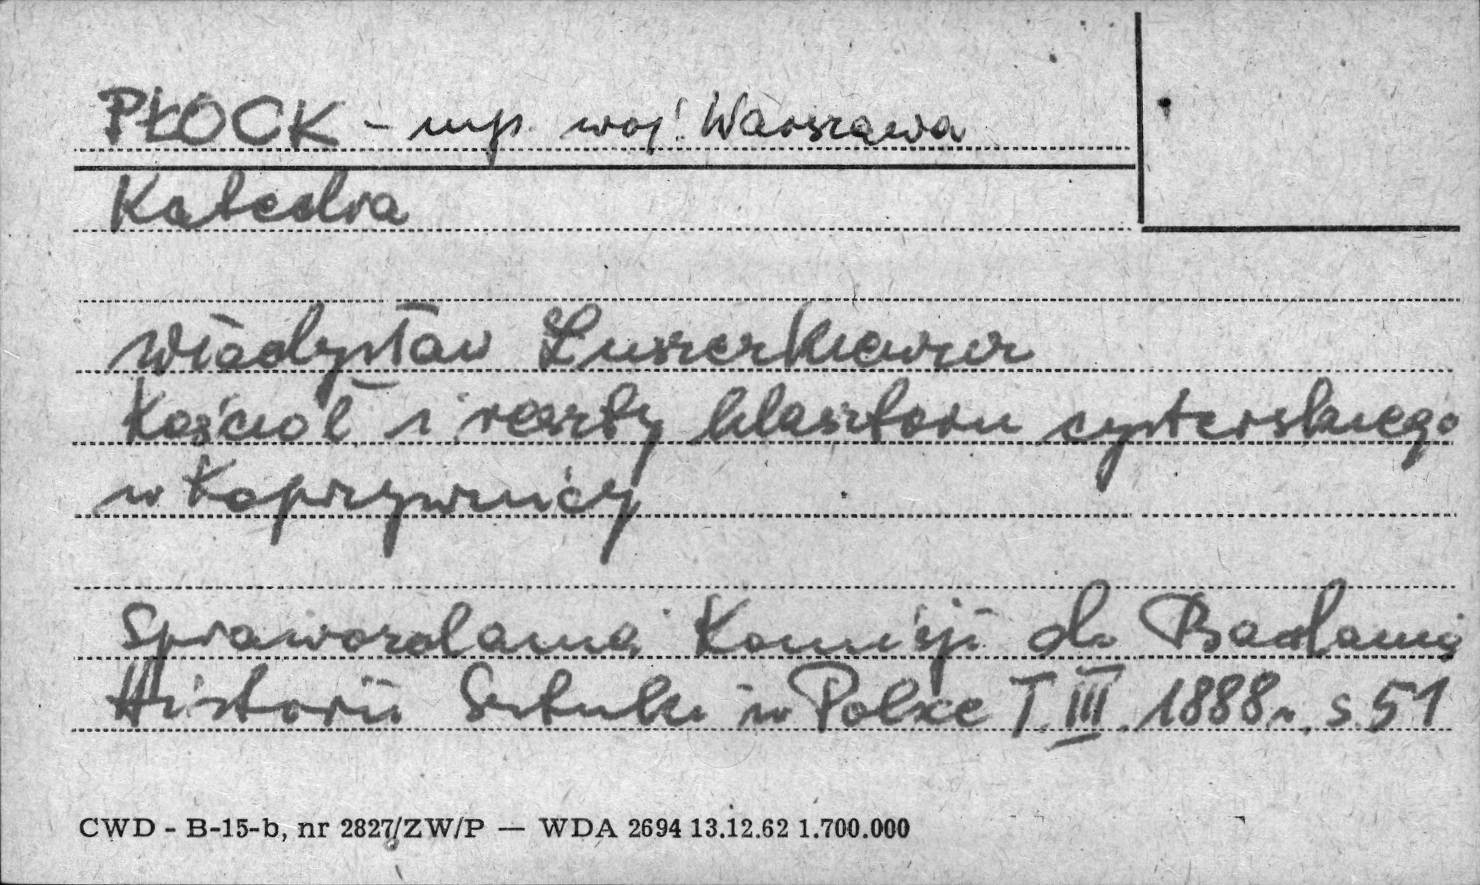 PŁOCK - mp. woj. Warszawa
Katedra
Władysław Łuszczkiewicz
Kościół i reszty klasztoru cysterskiego
w Koprzywnicy
Sprawozdania Komisji do Badania
Historii Sztuki w Polsce T. III. 1888r. s. 51
CWD - B-15-b, nr 2827/ZW/P — WDA 2694 13.12.62 1.700.000